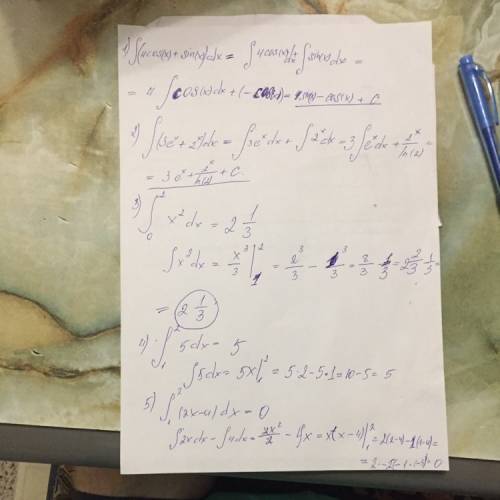 1) ∫(4cos(x)+sin(x))dx = ∫4cos(x)dx + ∫sin(x)dx =
= 4∫cos(x)dx + (-cos(x)) = 4sin(x) - cos(x) + C
2) ∫(3eˣ+2ˣ)dx = ∫3eˣdx + ∫2ˣdx = 3∫eˣdx + 2ˣ/ln(2) =
= 3eˣ + 2ˣ/ln(2) + C.
3) ∫₀² x²dx = 2 1/3
∫x²dx = x³/3 |₁² = 2³/3 - 1³/3 = 8/3 - 1/3 = 2 2/3 - 1/3 =
= 2 1/3
4) ∫₁² 5dx = 5
∫5dx = 5x|₁² = 5·2-5·1 = 10-5 = 5
5) ∫₁² (2x-4)dx = 0
∫2xdx - ∫4dx = 2x²/2 - 4x = x(x-4)|₁² = 2(2-4)-1(1-4) =